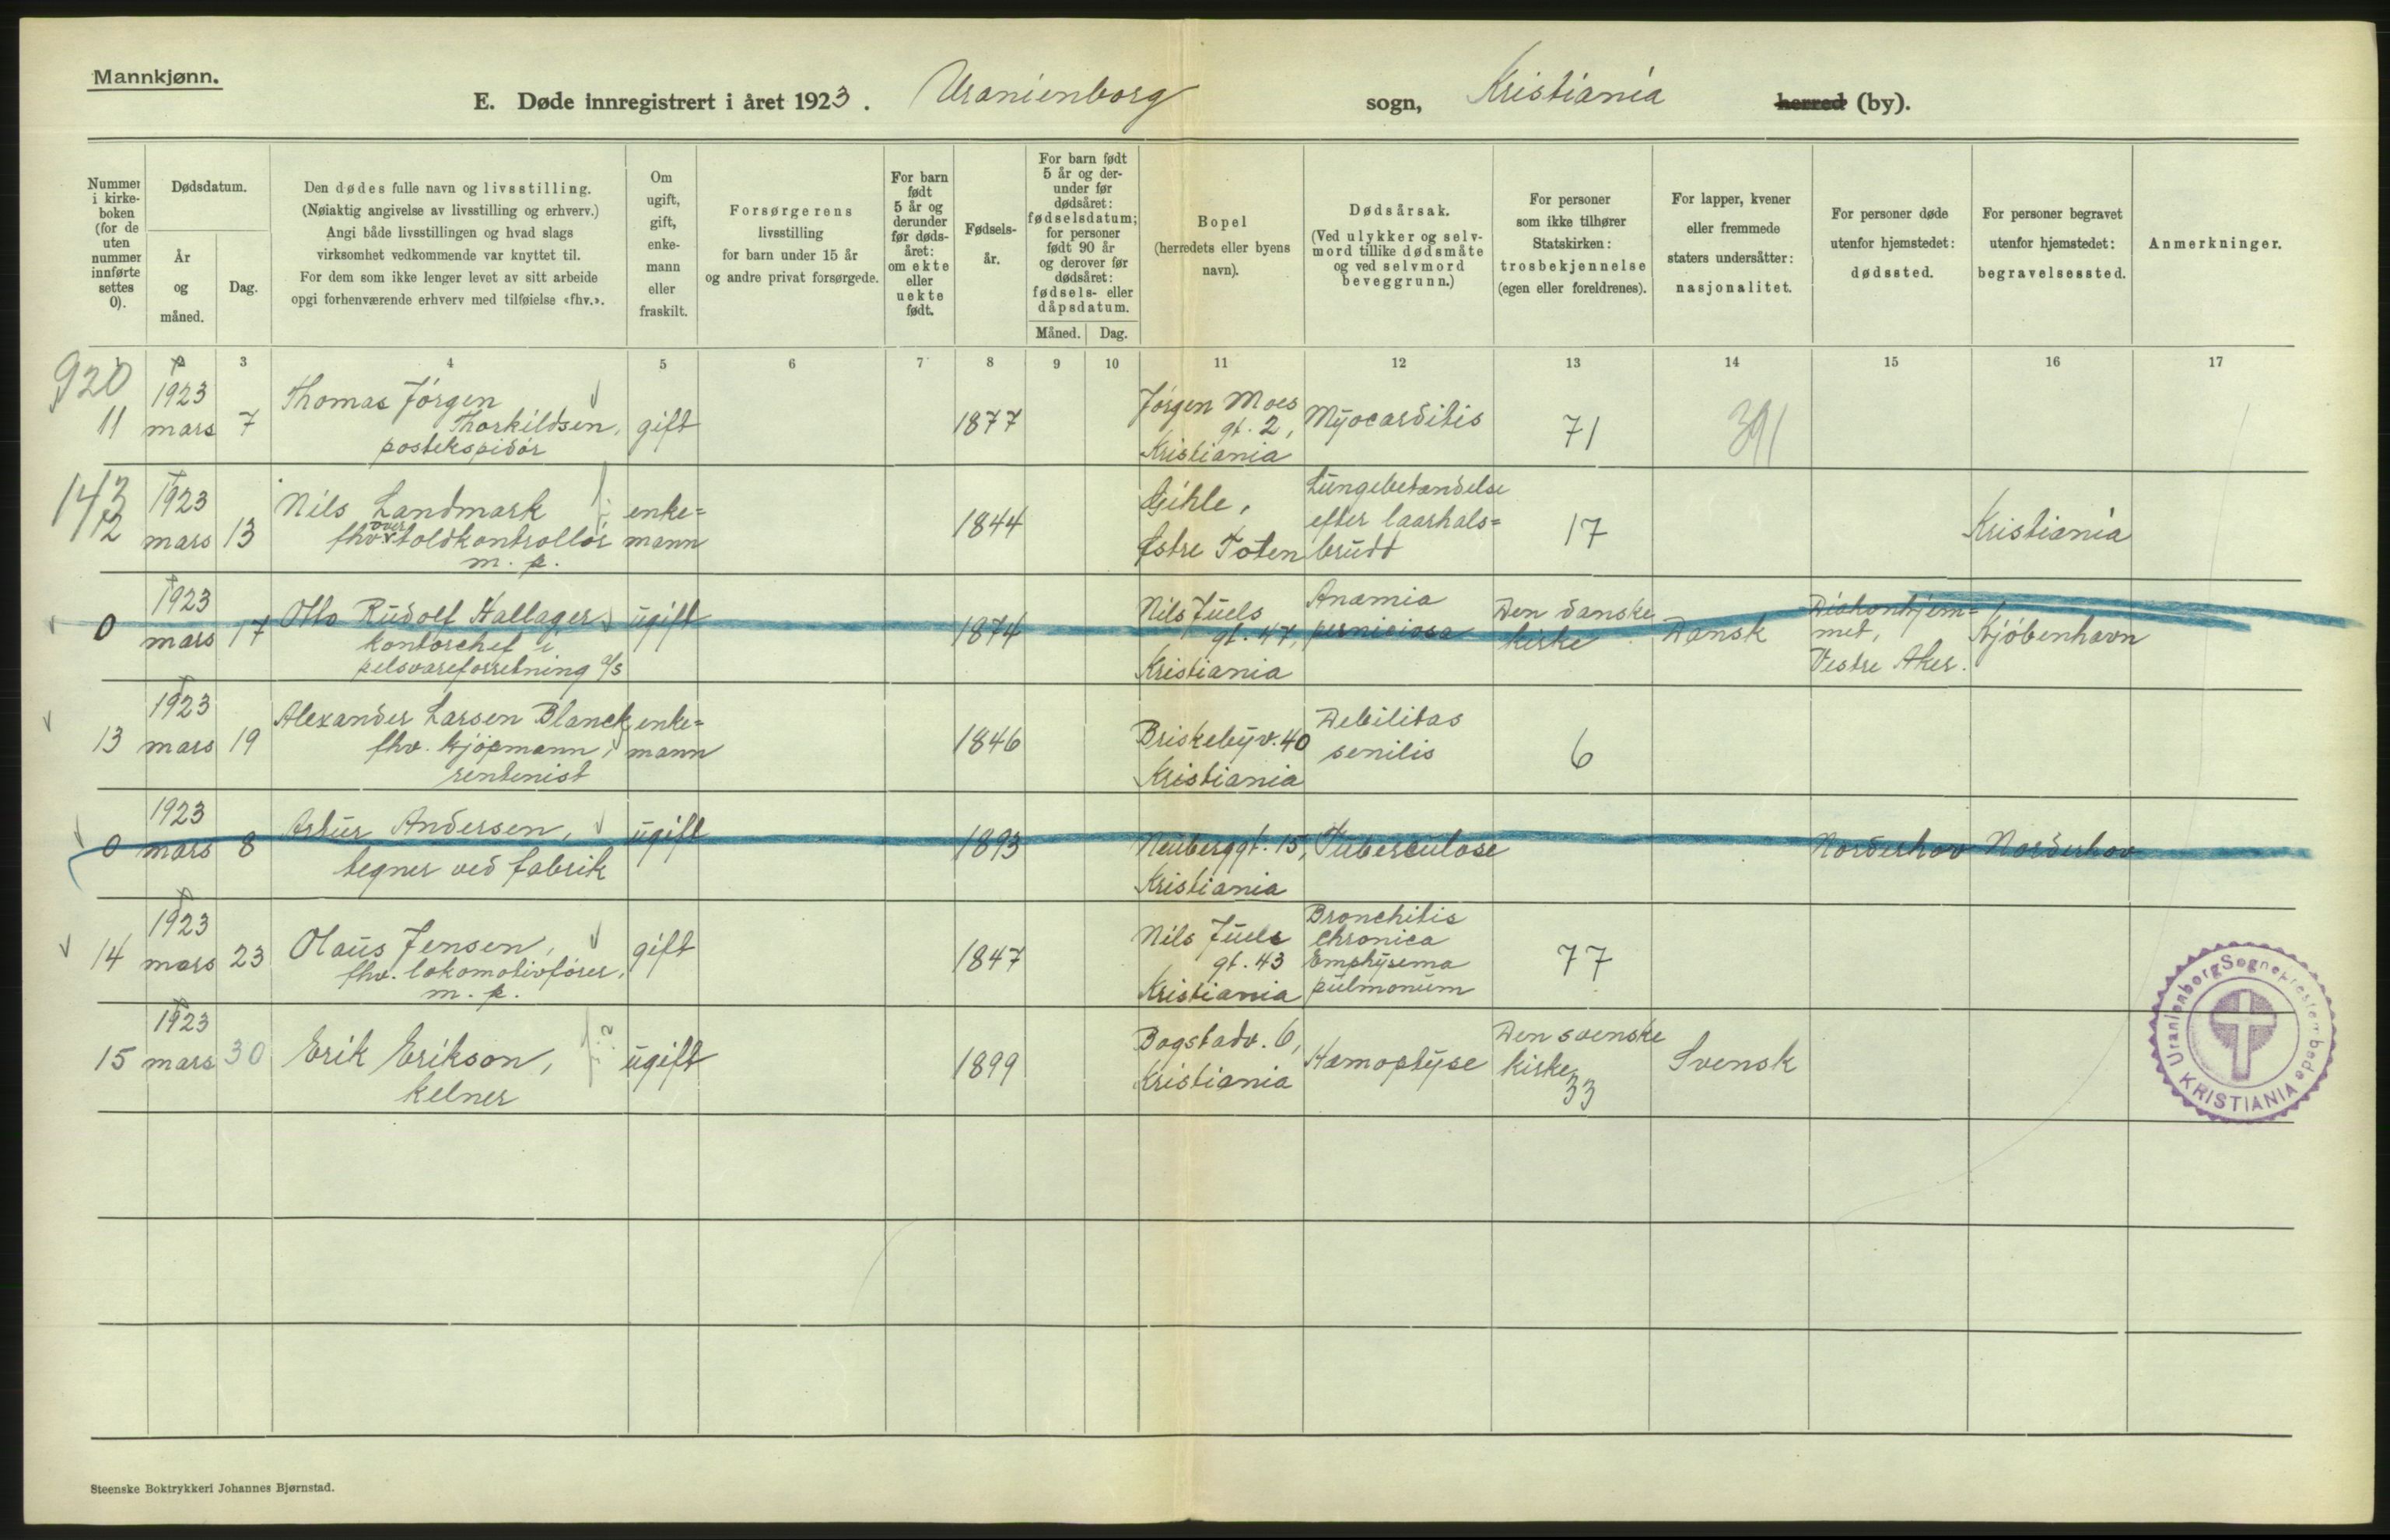 Mannkjønn.
E. Døde innregistrert i året 1923. Uranienborg sogn, Kristiania herred (by).
Nummer i kirkeboken (for de uten nummer innførte settes 0).
Dødsdatum.
År og måned.
Dag.
Den dødes fulle navn og livsstilling.
(Nøiaktig angivelse av livsstilling og erhverv.)
Angi både livsstillingen og hvad slags
virksomhet vedkommende var knyttet til.
For dem som ikke lenger levet av sitt arbeide
opgi forhenværende erhverv med tilføielse «fhv.».
Om ugift, gift, enkemann eller fraskilt.
Forsørgerens
livsstilling
for barn under 15 år
og andre privat forsørgede.
For barn født 5 år og derunder før dødsåret: om ekte eller uekte født.
Fødselsår.
For barn født 5 år og derunder før dødsåret: fødselsdatum; for personer født 90 år og derover før dødsåret: fødsels- eller dåpsdatum.
Måned. Dag.
Bopel
(herredets eller byens
navn).
Dødsårsak.
(Ved ulykker og selvmord tillike dødsmåte
og ved selvmord
beveggrunn.)
For personer
som ikke tilhører
Statskirken:
trosbekjennelse
(egen eller foreldrenes).
For lapper, kvener
eller fremmede
staters undersåtter:
nasjonalitet.
For personer døde
utenfor hjemstedet:
dødssted.
For personer begravet
utenfor hjemstedet:
begravelsessted.
Anmerkninger.
1 2 3 4 5 6 7 8 9 10 11 12 13 14 15 16 17
920
11 1923 mars 7 Thomas Jörgen Thorkildsen, postekspidör gift 1877 Jörgen Moes gt. 2, Kristiania Myocarditis 71 391
143
12 1923 mars 13 Nils Landmark fhv. overtoldkontrollör m. p. enke=mann 1844 Gihle, Östre Toten Lungebetændelse efter laarhals=brudd 17 Kristiania
0 1923 mars 17 Otto Rudolf Hallager, kontorchef i pelsvareforretning a/s ugift 1874 Nils Juels gt. 47, Kristiania Anæmia perniciosa Den danske kirke Dansk Diakonhjem=met, Vestre Aker. Kjöbenhavn
13 1923 mars 19 Alexander Larsen Blanck, fhv. kjöpmann, rentenist enke=mann 1846 Briskebyv. 40 Kristiania Debilitas senilis 6
0 1923 mars 8 Artur Andersen, tegner ved fabrik ugift 1893 Neuberggt. 15, Kristiania Tuberculose Norderhov Norderhov
14 1923 mars 23 Olaus Jensen, fhv. lokomotivförer, m. p. gift 1847 Nils Juels gt. 43 Kristiania Bronchitis chronica Emphysema pulmonum 77
15 1923 mars 30 Erik Erikson, kelner ugift 1899 Bogstadv. 6, Kristiania Hæmoptyse Den svenske kirke 33 Svensk
Uranienborg Sogneprestembede
KRISTIANIA
Steenske Boktrykkeri Johannes Bjørnstad.